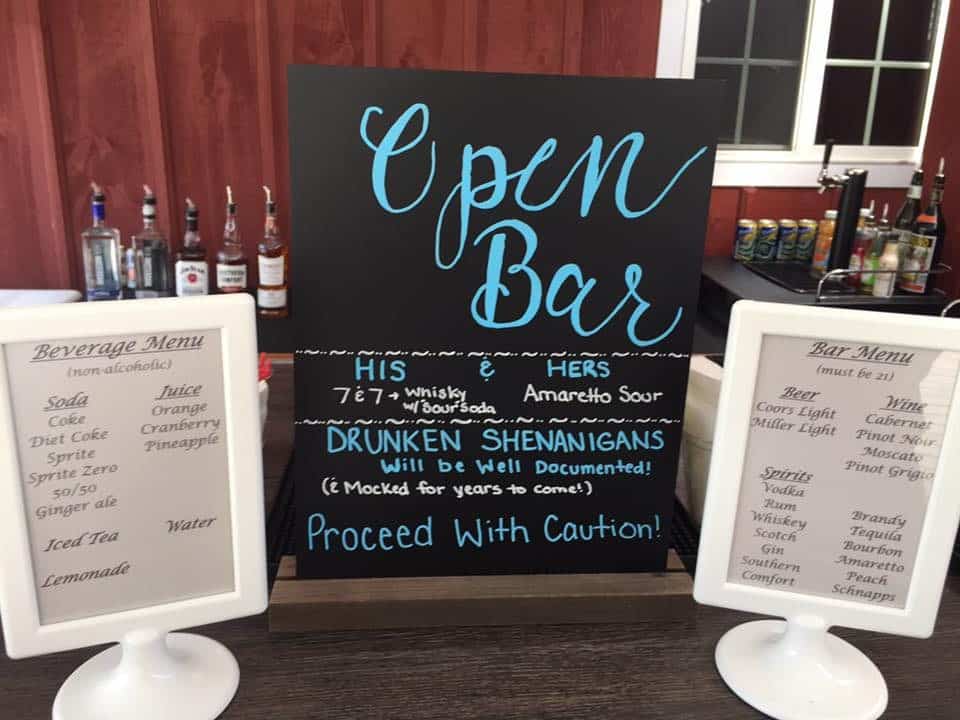 Open
Bar
HIS & HERS
7 & 7 → Whisky
w/ Sour Soda
Amaretto Sour
DRUNKEN SHENANIGANS
Will be Well Documented!
(& Mocked for years to come!)
Proceed With Caution!
Beverage Menu
(non-alcoholic)
Soda
Coke
Diet Coke
Sprite
Sprite Zero
50/50
Ginger ale
Iced Tea
Lemonade
Juice
Orange
Cranberry
Pineapple
Water
Bar Menu
(must be 21)
Beer
Coors Light
Miller Light
Wine
Cabernet
Pinot Noir
Moscato
Pinot Grigio
Spirits
Vodka
Rum
Whiskey
Scotch
Gin
Southern
Comfort
Brandy
Tequila
Bourbon
Amaretto
Peach
Schnapps
JIM BEAM
SOUTHERN
COMFORT